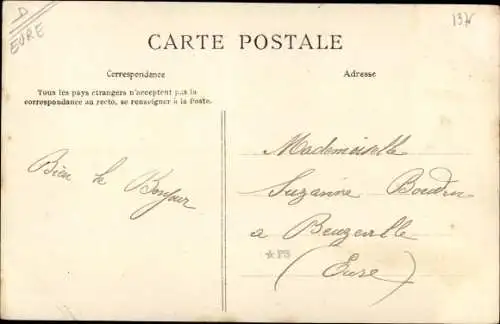 D
EURE
137
CARTE POSTALE
Correspondance
Tous les pays étrangers n'acceptent pas la
correspondance au recto, se renseigner à la Poste.
Adresse
Bien le Bonjour
Mademoiselle
Suzanne Boudin
a Beuzeville
(Eure)
★PS